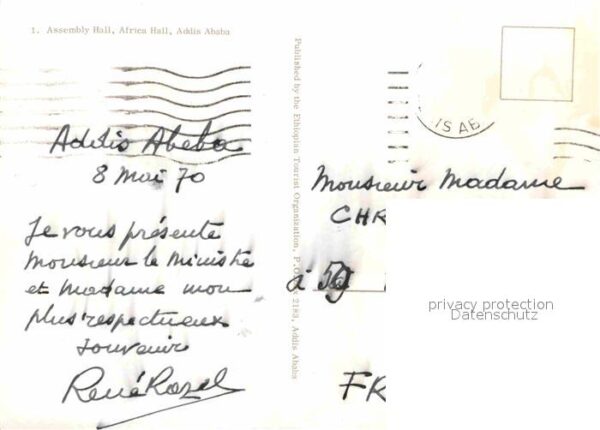 1. Assembly Hall, Africa Hall, Addis Ababa
Addis Abeba
8 Mai 70
Je vous présente
Monsieur le Ministre
et Madame mon
plus respectueux
souvenir
Published by the Ethiopian Tourist Organization, P.O. 2183, Addis Ababa
IS AB
Monsieur Madame
CHR
à 59
FR
privacy protection
Datenschutz